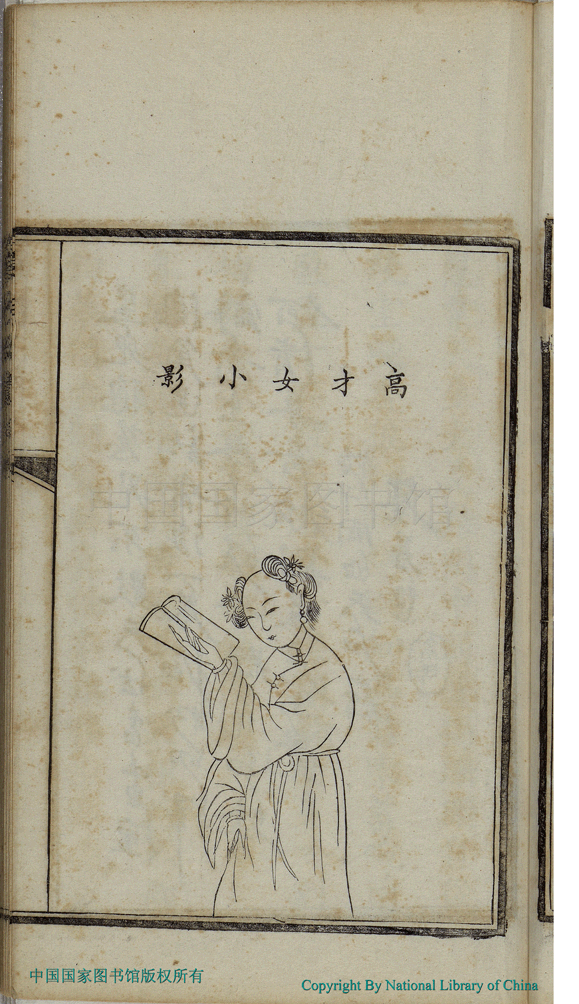 高才女小影
中国国家图书馆
中国国家图书馆版权所有
Copyright By National Library of China